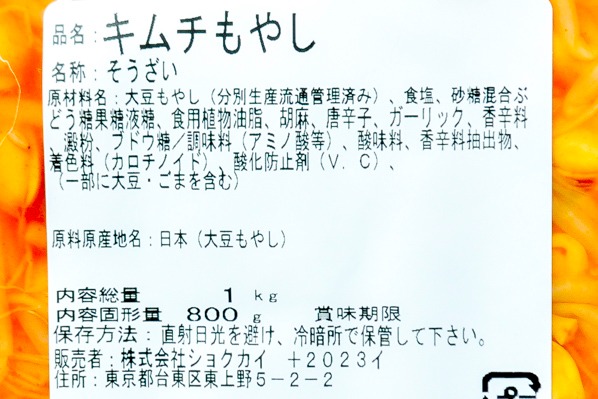 品名：キムチもやし
名称：そうざい
原材料名：大豆もやし（分別生産流通管理済み）、食塩、砂糖混合ぶ
どう糖果糖液糖、食用植物油脂、胡麻、唐辛子、ガーリック、香辛料
、澱粉、ブドウ糖／調味料（アミノ酸等）、酸味料、香辛料抽出物、
着色料（カロチノイド）、酸化防止剤（Ｖ．Ｃ）、
（一部に大豆・ごまを含む）
原料原産地名：日本（大豆もやし）
内容総量 1 kg
内容固形量 800 g 賞味期限
保存方法：直射日光を避け、冷暗所で保管して下さい。
販売者：株式会社ショクカイ ＋2023イ
住所：東京都台東区東上野５－２－２
プ